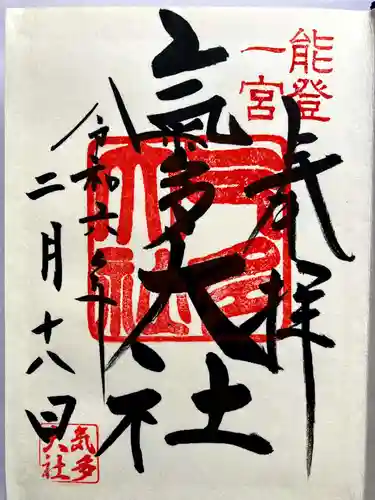 能登
一宮
奉拝
氣多大社
令和六年
二月十八日
氣多大社
気多
大社